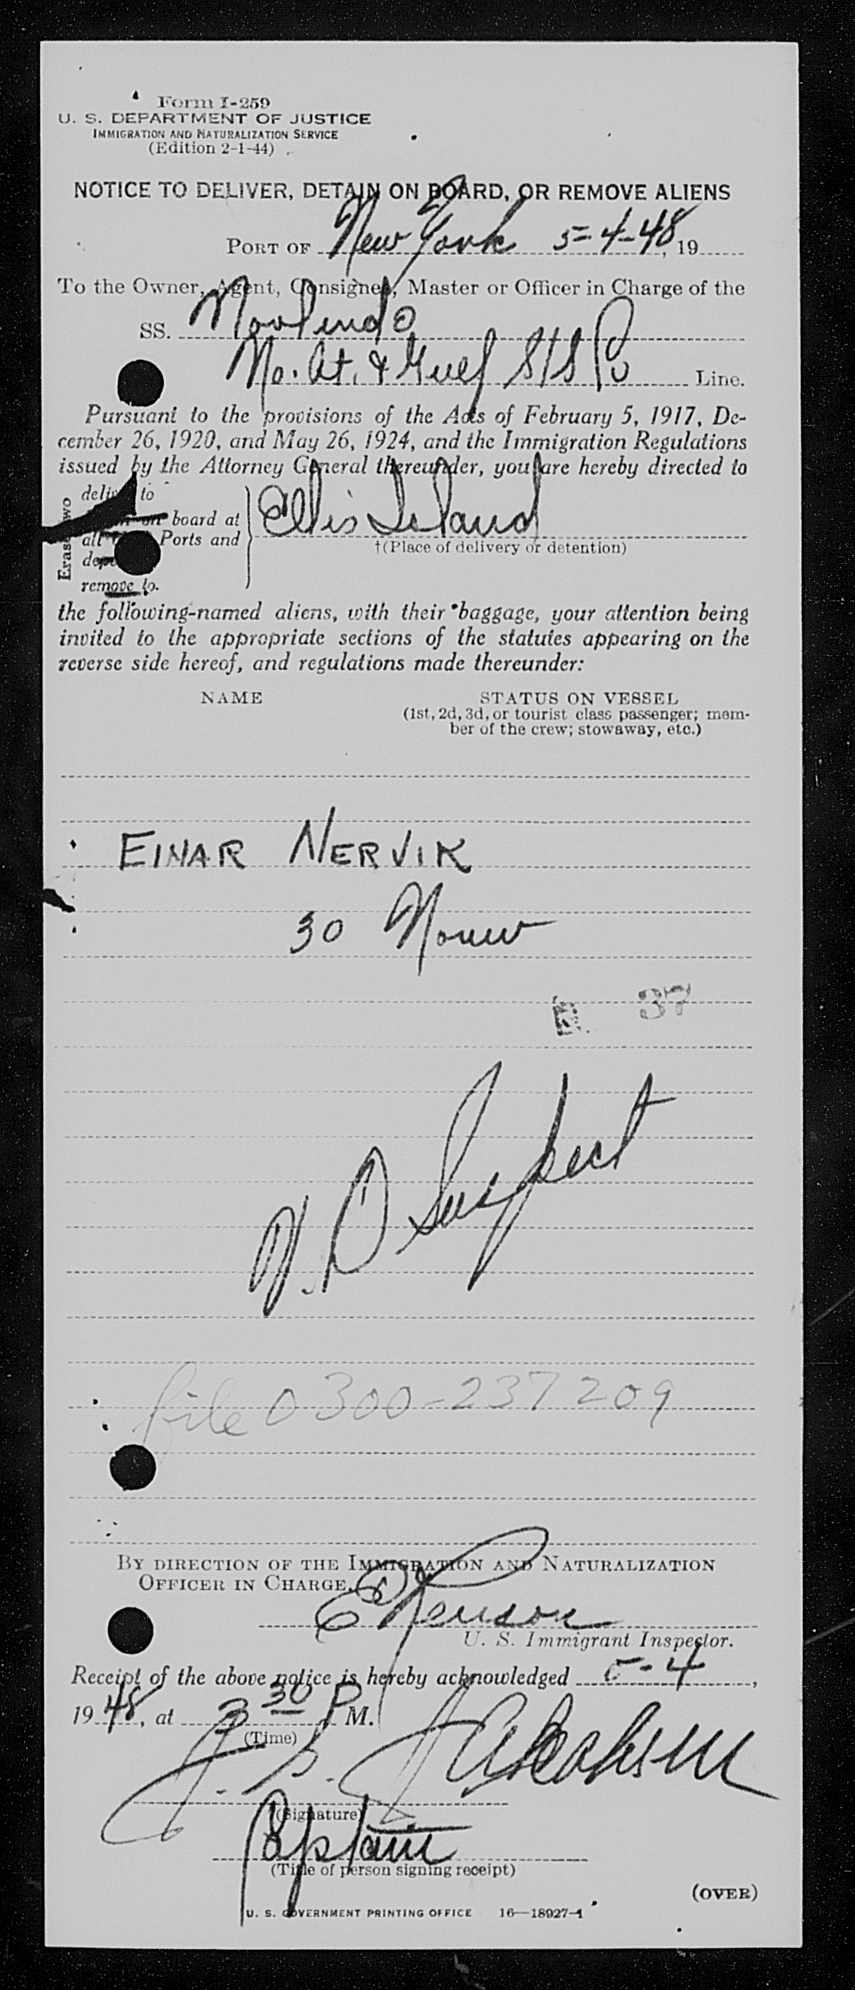 Form I-259
U. S. DEPARTMENT OF JUSTICE
IMMIGRATION AND NATURALIZATION SERVICE
(Edition 2-1-44)
NOTICE TO DELIVER, DETAIN ON BOARD, OR REMOVE ALIENS
PORT OF New York 5-4-48, 19
To the Owner, Agent, Consignee, Master or Officer in Charge of the
SS.
No. At. & Gulf S/S Co Line.
Pursuant to the provisions of the Acts of February 5, 1917, De-
cember 26, 1920, and May 26, 1924, and the Immigration Regulations
issued by the Attorney General thereunder, you are hereby directed to
Erase two
deliver to
on board at
all Ports and
remove to.
Ellis Island
†(Place of delivery or detention)
the following-named aliens, with their baggage, your attention being
invited to the appropriate sections of the statutes appearing on the
reverse side hereof, and regulations made thereunder:
NAME STATUS ON VESSEL
(1st, 2d, 3d, or tourist class passenger; mem-
ber of the crew; stowaway, etc.)
EINAR NERVIK
30
37
V. D Suspect
file 0300-237209
BY DIRECTION OF THE IMMIGRATION AND NATURALIZATION
OFFICER IN CHARGE,
U. S. Immigrant Inspector.
Receipt of the above notice is hereby acknowledged 5-4,
1948, at 3 30 P M.
(Time)
(Signature)
Captain
(Title of person signing receipt)
(OVER)
U. S. GOVERNMENT PRINTING OFFICE 16—18927-1